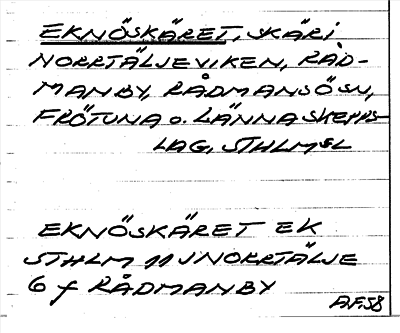 EKNÖSKÄRET, SKÄR i
NORRTÄLJEVIKEN, RÅD-
MANBY, RÅDMANSÖ SN,
FRÖTUNA o. LÄNNA SKEPPS-
LAG, STHLMS L
EKNÖSKÄRET EK
STHLM 11 J NORRTÄLJE
6 f RÅDMANBY
A.F. 58